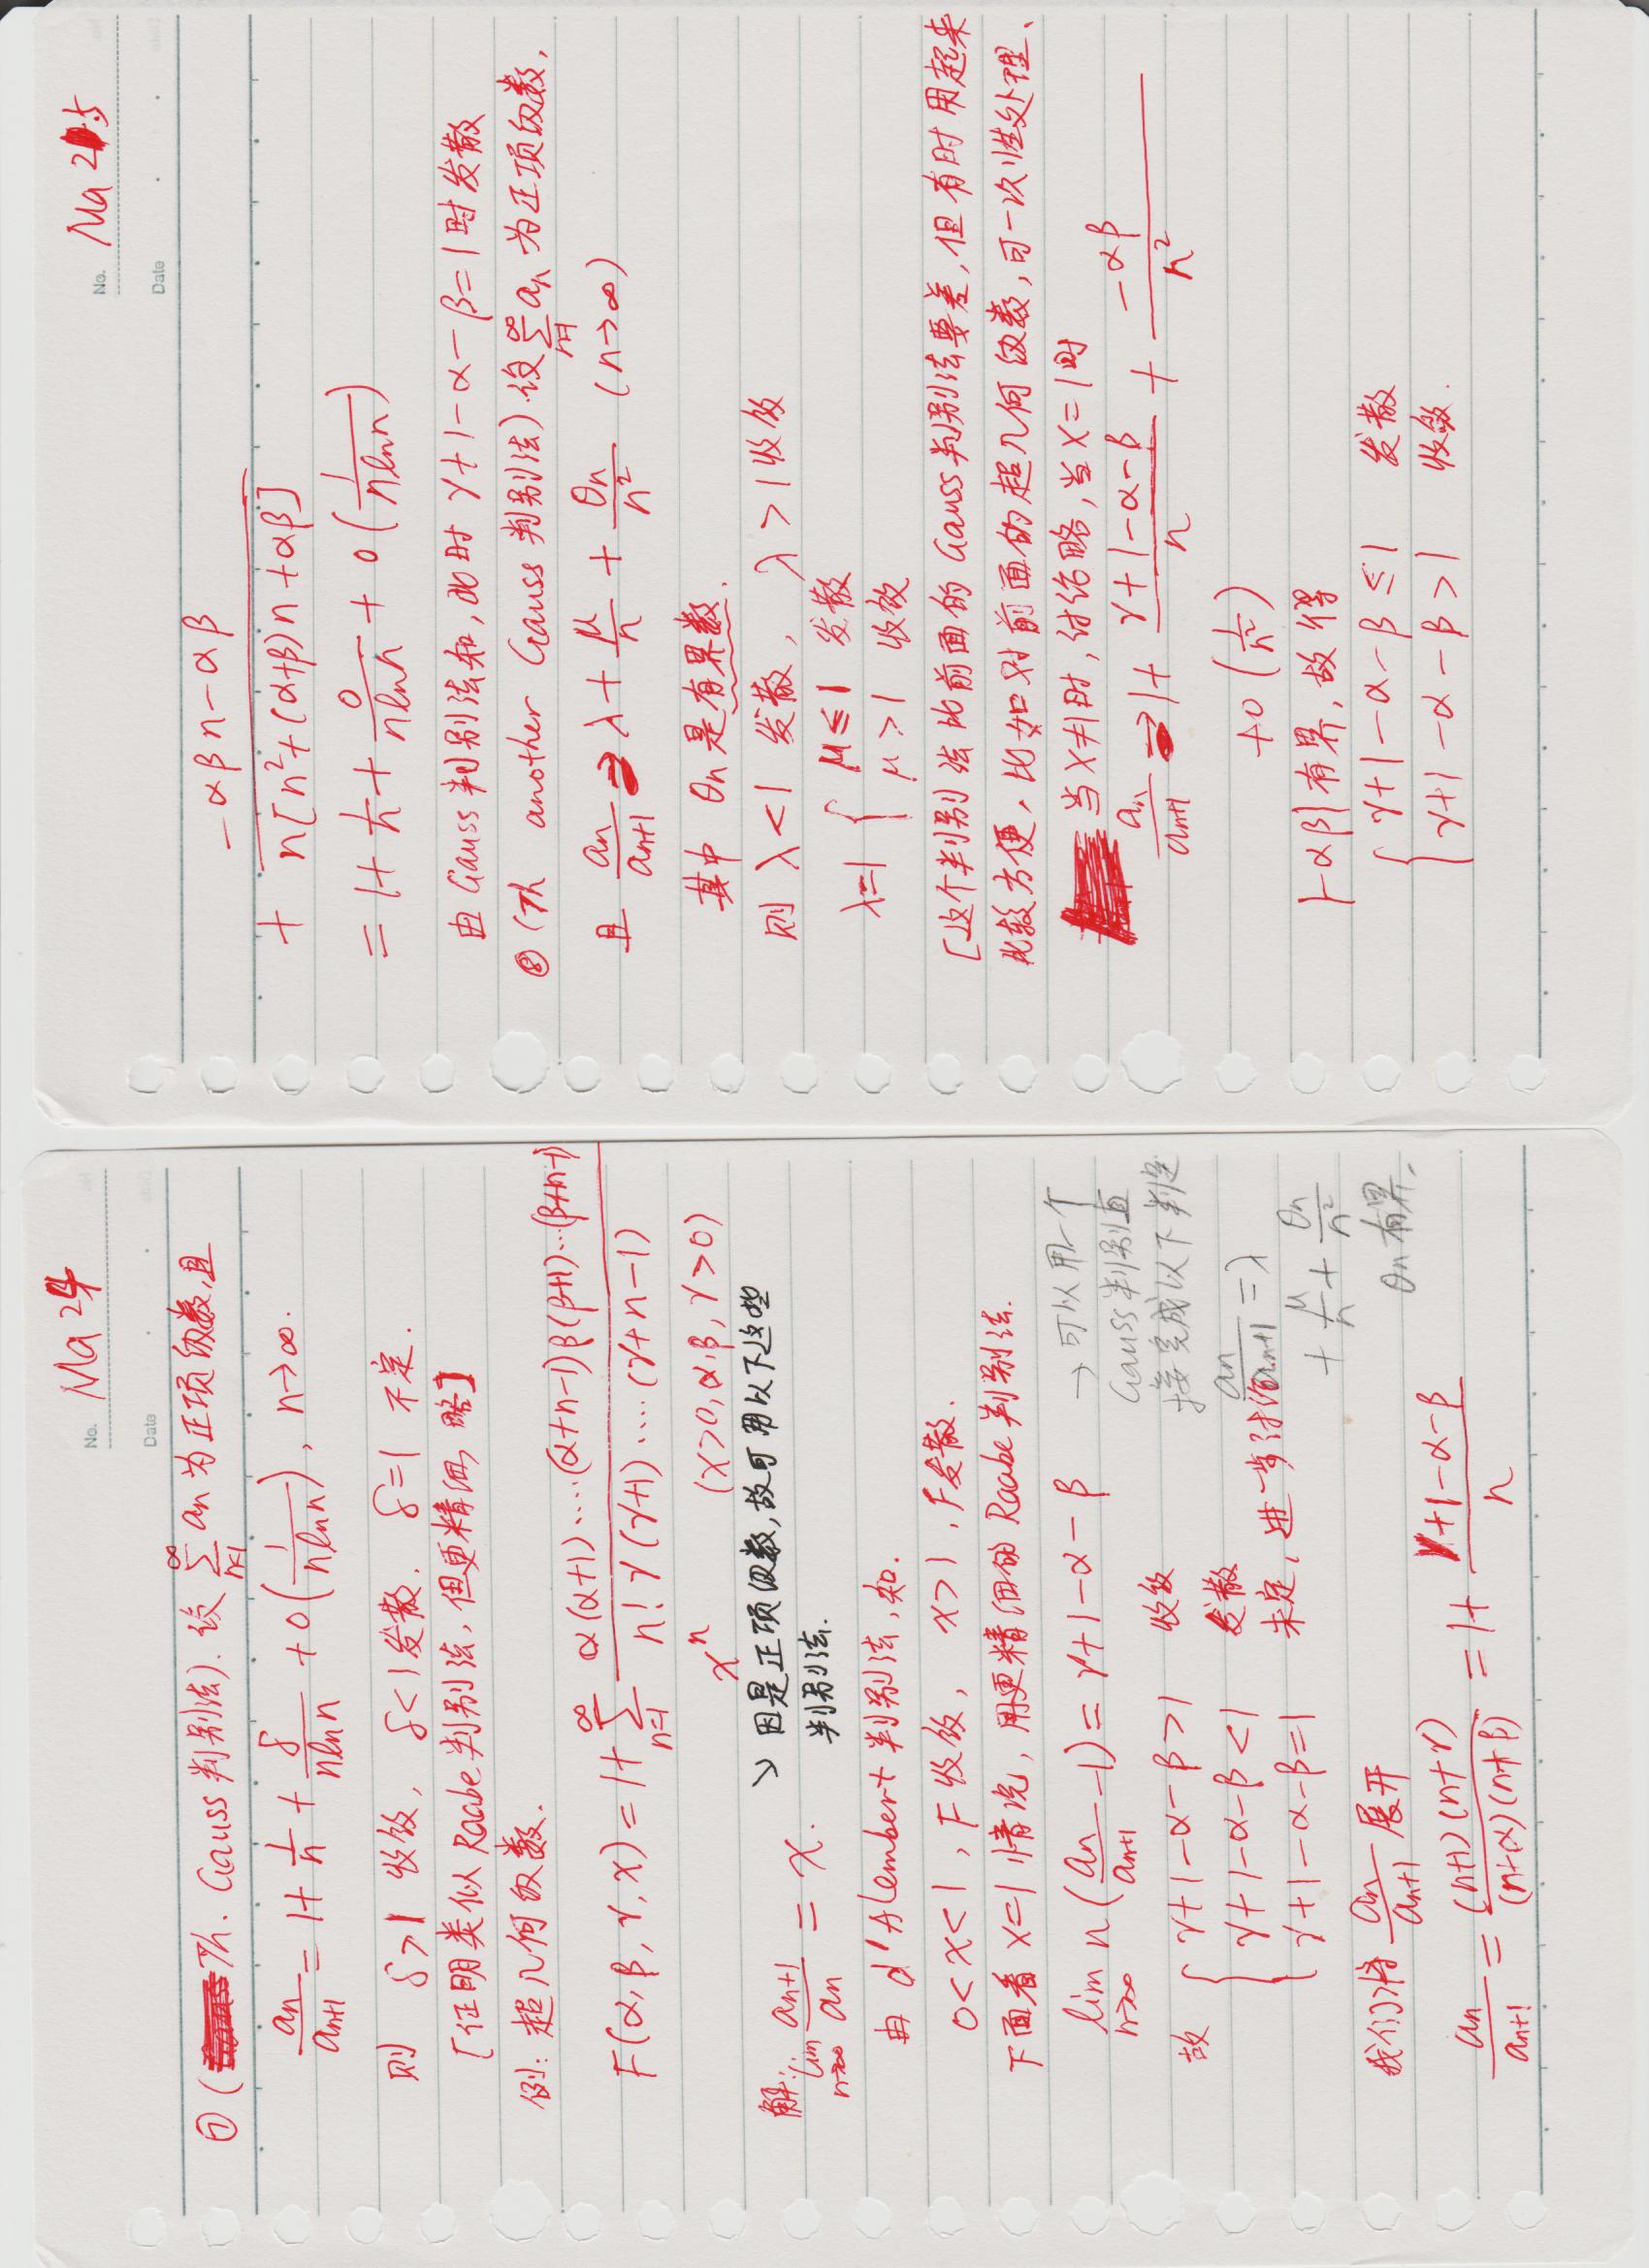 No. Ma 24
Date
⑦ (Th. Gauss 判别法). 设 $\sum_{n=1}^{\infty} a_n$ 为正项级数,且
$\frac{a_n}{a_{n+1}} = 1 + \frac{1}{n} + \frac{\delta}{n\ln n} + o\left(\frac{1}{n\ln n}\right), n\to\infty.$
则 δ>1 收敛, δ<1 发散. δ=1 不定.
[证明类似 Raabe 判别法,但更精细,略]
例: 超几何级数.
$F(\alpha,\beta,\gamma,x) = 1 + \sum_{n=1}^{\infty} \frac{\alpha(\alpha+1)\cdots(\alpha+n-1)\beta(\beta+1)\cdots(\beta+n-1)}{n!\gamma(\gamma+1)\cdots(\gamma+n-1)}$
$x^n$ (x>0, α, β, γ>0)
↘ 因是正项级数,故可用以下这些
判别法.
解: $\lim_{n\to\infty} \frac{a_{n+1}}{a_n} = x.$
由 d'Alembert 判别法,知.
0<x<1, F 收敛, x>1, F发散.
下面看 x=1 情况, 用更精细的 Raabe 判别法.
$\lim_{n\to\infty} n\left(\frac{a_n}{a_{n+1}} - 1\right) = \gamma+1-\alpha-\beta$
故 { γ+1-α-β>1 收敛
γ+1-α-β<1 发散
γ+1-α-β=1 未定, 进一步讨论
→ 可以用一个
Gauss 判别直
接完成以下判定
$\frac{a_n}{a_{n+1}} = \lambda$
$+ \frac{\mu}{n} + \frac{\theta_n}{n^2}$
θn 有界.
我们将 $\frac{a_n}{a_{n+1}}$ 展开
$\frac{a_n}{a_{n+1}} = \frac{(n+1)(n+\gamma)}{(n+\alpha)(n+\beta)} = 1 + \frac{\gamma+1-\alpha-\beta}{n}$
No. Ma 25
Date
$+ \frac{-\alpha\beta n-\alpha\beta}{n[n^2+(\alpha+\beta)n+\alpha\beta]}$
$= 1 + \frac{1}{n} + \frac{0}{n\ln n} + o\left(\frac{1}{n\ln n}\right)$
由 Gauss 判别法知,此时 γ+1-α-β=1时发散
⑧ (Th another Gauss 判别法) 设 $\sum_{n=1}^{\infty} a_n$ 为正项级数,
且 $\frac{a_n}{a_{n+1}} = \lambda + \frac{\mu}{n} + \frac{\theta_n}{n^2}$ (n→∞)
其中 θn 是有界数.
则 λ<1 发散, λ>1收敛
λ=1 { μ≤1 发散
μ>1 收敛
[这个判别法比前面的 Gauss 判别法要差,但有时用起来
比较方便,比如对前面的超几何级数,可一次性处理、
当 x≠1时,讨论略,当 x=1时
$\frac{a_n}{a_{n+1}} = 1 + \frac{\gamma+1-\alpha-\beta}{n} + \frac{-\alpha\beta}{n^2}$
$+ o\left(\frac{1}{n^2}\right)$
|-αβ| 有界,故得
{ γ+1-α-β≤1 发散
γ+1-α-β>1 收敛.